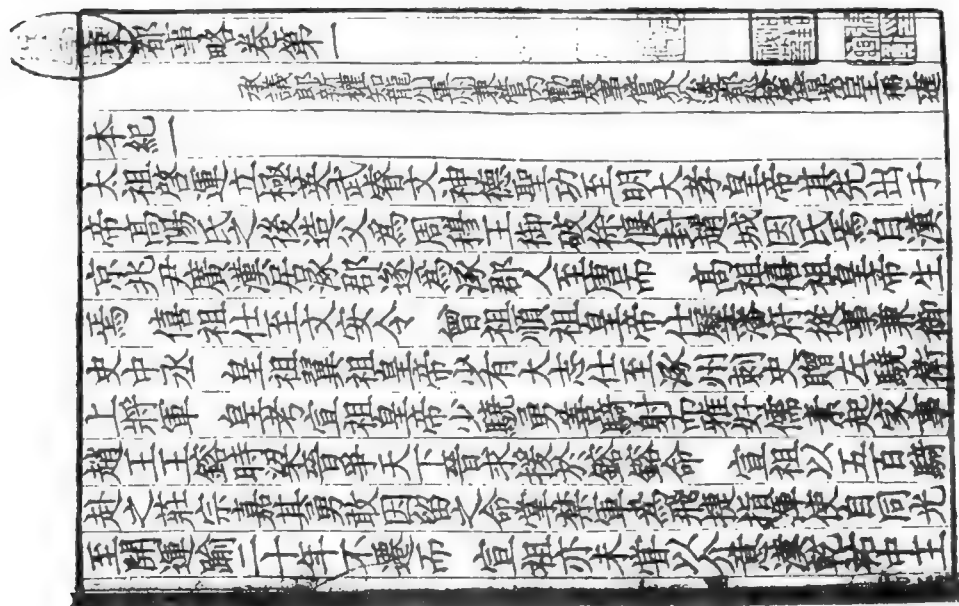 東都事略卷第一
承議郎新權知龍州軍州兼管內勸農事管界沿邊都巡檢使借紫臣王稱
本紀一
太祖啓運立極英武睿文神德聖功至明大孝皇帝其先出于
帝高陽氏之後造父爲周穆王御破徐偃封趙城因氏焉自漢
京兆尹廣漢居涿郡遂爲涿郡人至唐而 高祖僖祖皇帝生
焉 僖祖仕至文安令 曾祖順祖皇帝仕歷藩府從事兼御
史中丞 皇祖翼祖皇帝少有大志仕至涿州刺史贈左驍衛
上將軍 皇考宣祖皇帝少驍勇善騎射而雅好儒素起家事
趙王王鎔時梁晉爭天下晉求援於鎔鎔命 宣祖以五百騎
赴之莊宗嘉其勇敢因留之命掌禁軍爲飛捷指揮使自同光
至明運踰二十年不遷而 宣祖亦未嘗以介意漢乾祐中王